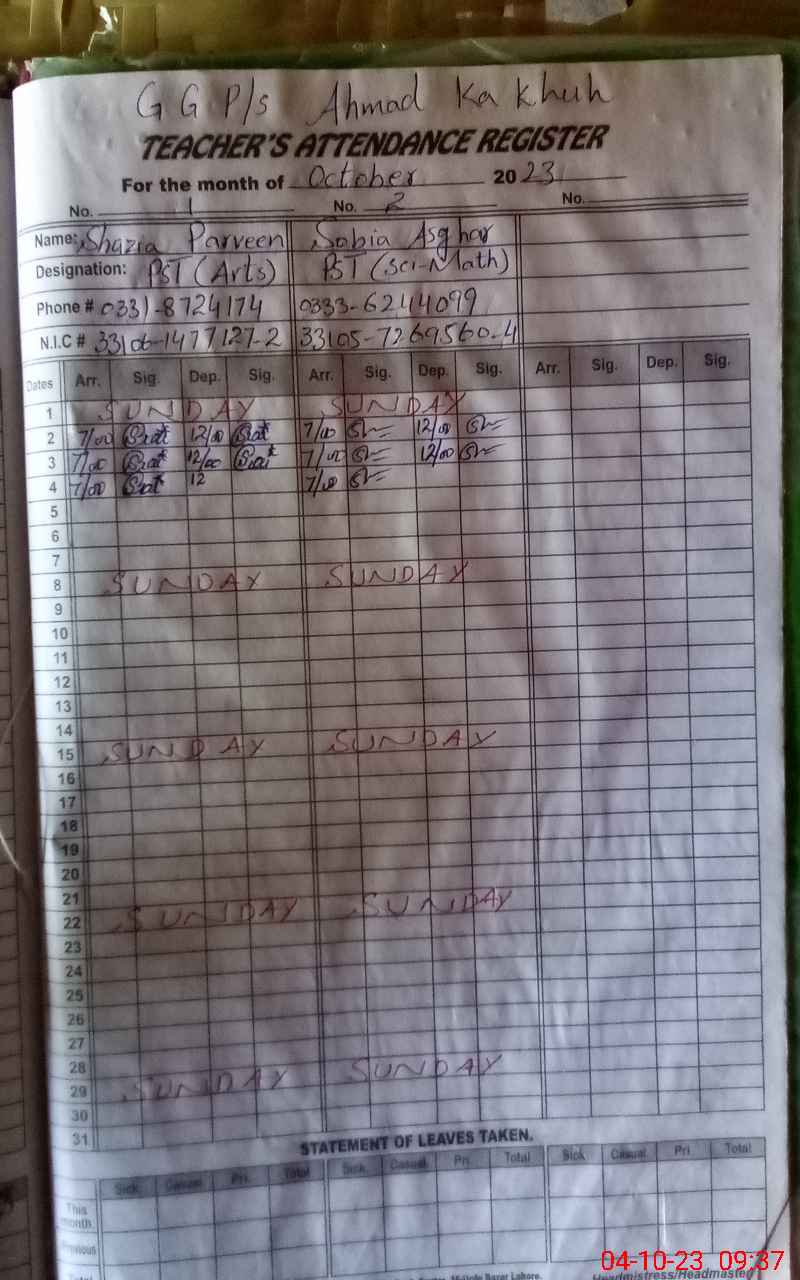 G G P/s Ahmad Ka Khuh
TEACHER'S ATTENDANCE REGISTER
For the month of October 2023
No. 1 No. 2 No.
Name: Shazia Parveen Sobia Asghar
Designation: PST (Arts) PST (Sci-Math)
Phone # 0331-8724174 0333-6244099
N.I.C # 33106-1477127-2 33105-7269560-4
Dates Arr. Sig. Dep. Sig. Arr. Sig. Dep. Sig. Arr. Sig. Dep. Sig.
1 SUNDAY SUNDAY
2 7/00 12/00 7/00 12/00
3 7/00 12/00 7/00 12/00
4 7/00 12 7/00
5
6
7
8 SUNDAY SUNDAY
9
10
11
12
13
14
15 SUNDAY SUNDAY
16
17
18
19
20
21
22 SUNDAY SUNDAY
23
24
25
26
27
28
29 SUNDAY SUNDAY
30
31
STATEMENT OF LEAVES TAKEN.
Sick Casual Pri. Total Sick Casual Pri. Total Sick Casual Pri Total
This month
Previous
Total Lahore. Headmistress/Headmaster
04-10-23 09:37